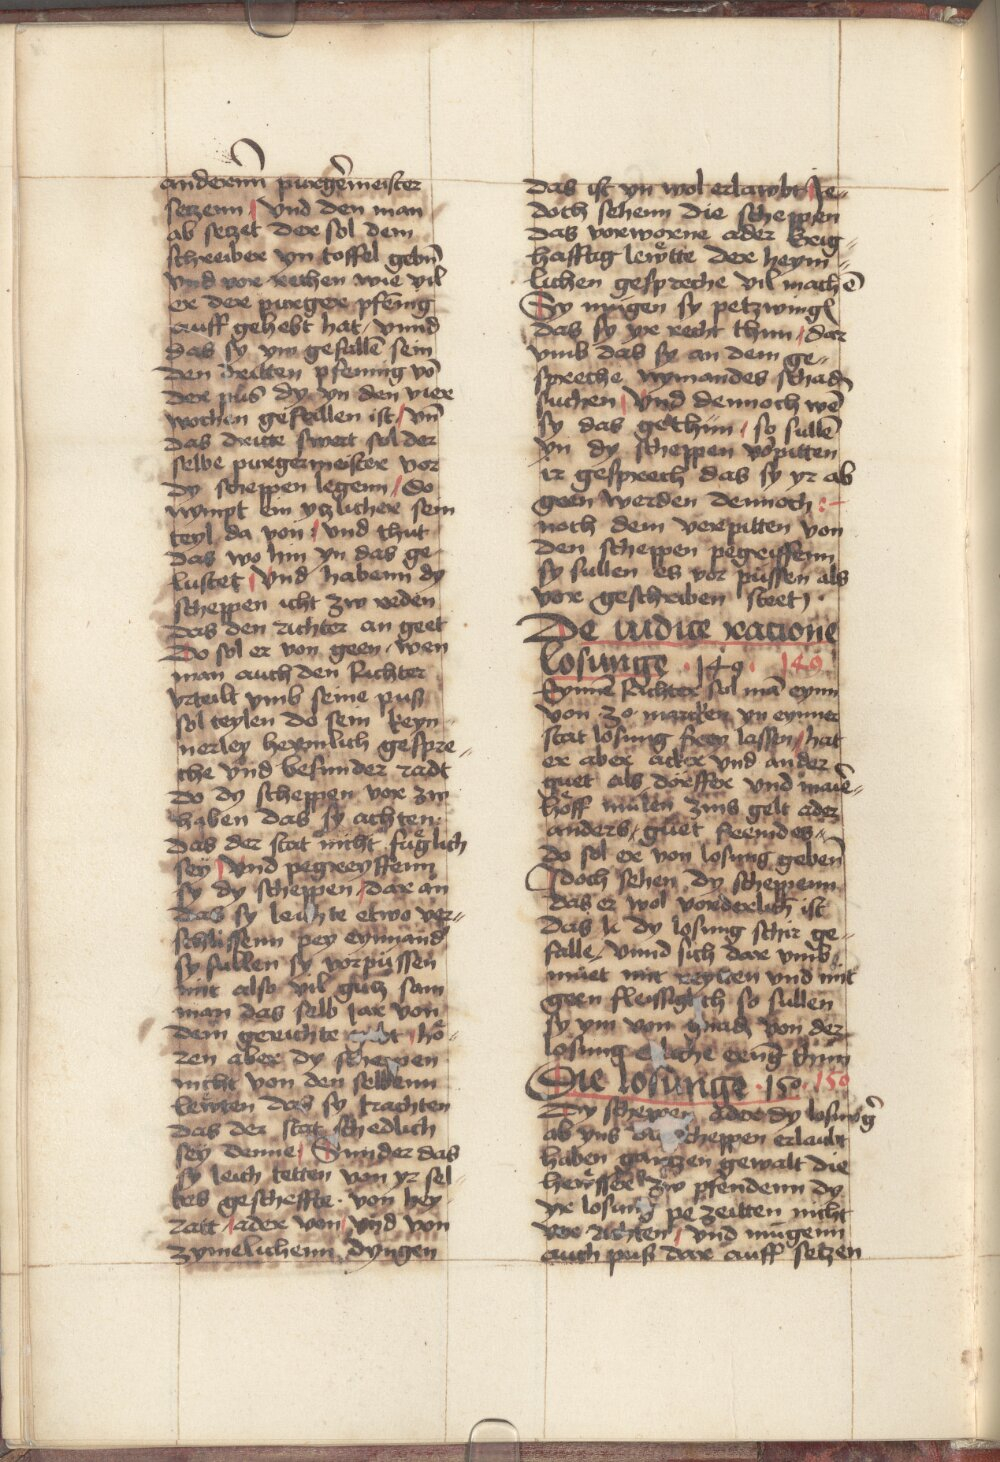 anderenn purgermeister
setzenn / Vnd den man
ab setzet der sol dem
schreiber yn toffel gebn̄
vnd vor rechen wie vil
er der purger pfenīg
auff gehebt hat / vnnd
das sy ym gefallē sein
den dritten pfennig vō
der pus dy yn den vier
wochen gefallen ist / vn̄
das dritte swert sol der
selbe purgermeister vor
dy scheppen legenn / So
nympt ein yczlicher sein
teyl da von / vnd thut
das wo hin yn das ge
lustet / Vnd habenn dy
scheppen icht zw reden
das den richter an geet
Do sol er von geen / wen
man auch den Richter
vrteilt vmb seine puß
sol teylen do sein keyn
nerley heymlich gespre-
che vnd besunder radt
do dy scheppen vor zw
haben das sy achten
das der stat nicht fuglich
sey / Vnd pegreyffenn
sy dy scheppen / dar an
das sy leichte etwo ver-
schlissenn pey eynnand
sy sullen sy vorpüssen
mit also vil gutz sam
man das selb Jar von
dem gerichte gibt / hö-
ren aber dy scheppen
nicht von den selbenn
lewten das sy trachten
das der stat schedlich
sey denne / Sunder das
sy leich tetten von yr sel-
bes gescheffte von hey-
ratt / ader von / vnd von
zymelichenn dyngen
das ist yn wol erlawbt Je-
doch sehenn die scheppen
das vorworne ader krig-
hafftig lewtte der heym-
lichen gespreche vil machē
Sy mugen sy petzwingē
das sy yr recht thun / dar
vmb das sy an dem ge-
spreche nymandes schadē
suchen / Vnd dennoch wē
sy das gethun / so sullē
yn dy scheppen vorpitten
ir gesprech das sy yr ab
geen werden dennoch :-
noch dem verpitten von
den scheppen pegriffenn
sy sullen es vor püssen als
vor geschriben steet .
De iudice racione
losunge . 149 . 149
Eynnē Richter sol mā eynn
von zo marcken yn eynner
stat losung frey lassen / hat
er aber acker vnd ander
guet als dörffer vnd maier-
höff mülen zins gelt ader
anders guet fremdes
do sol er von losung gebenn
Idoch sehen dy scheppenn
das er wol vorderlich ist
das le dy losung schir ge-
falle / vnnd sich dar vmb
müet mit reyten vnd mit
geen fleissiglich so sullen
sy ym von gnadē von der
losung etliche erūg thun
Die losunge . 150 . 150
Dy scheppen ader dy losung̓
ab yns die scheppen erlaubt
haben gantzen gewalt die
hewsser zw pfendenn dy
yr losung pe zeitten nicht
vor richten / Vnd mügenn
auch puß dar auff setzen